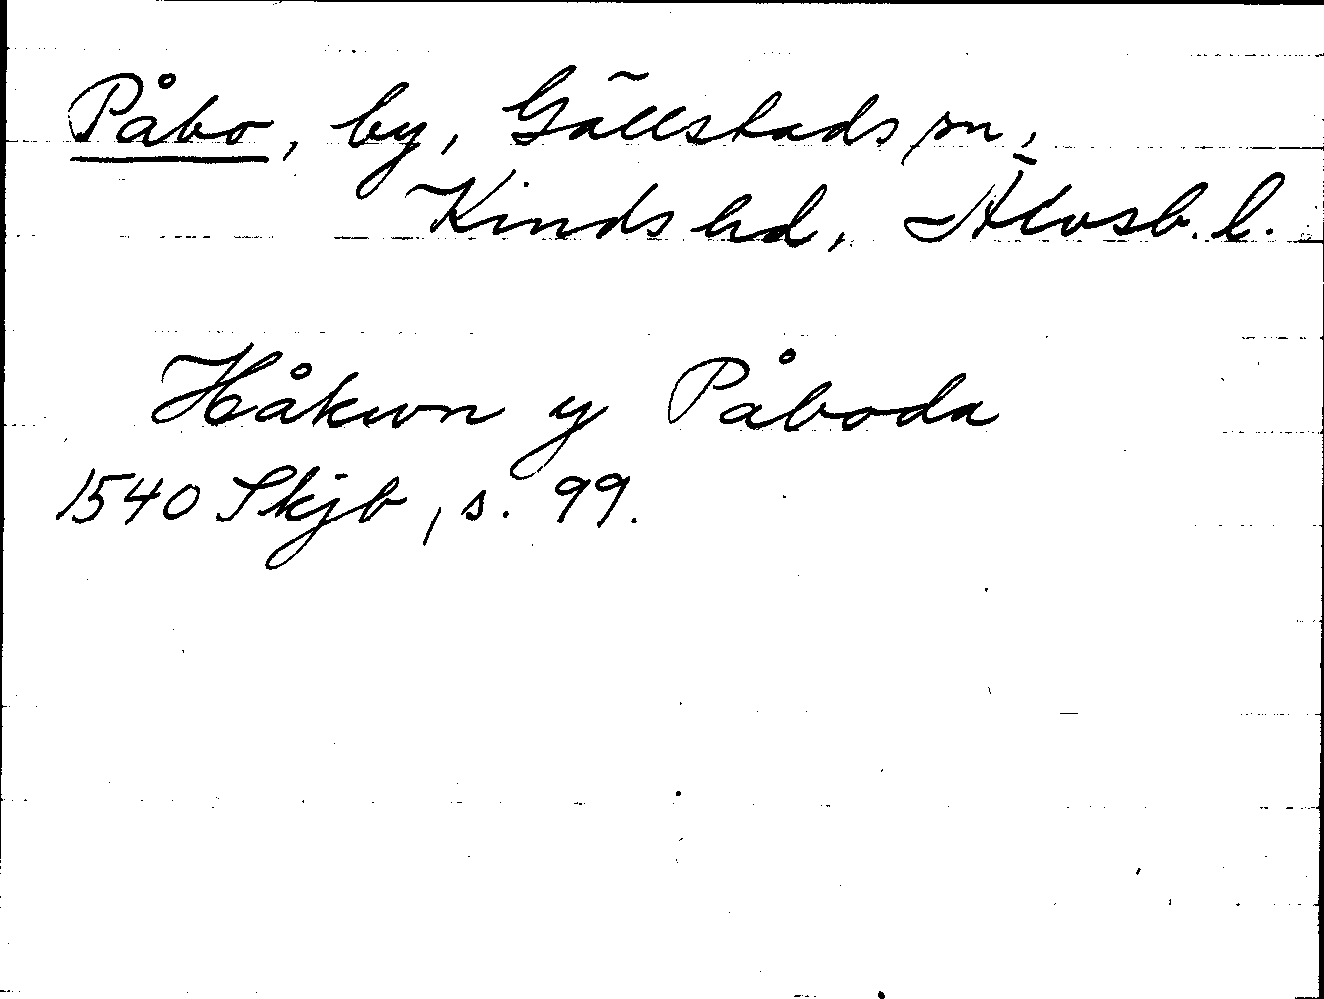 Påbo, by, Gällstads sn,
Kinds hd, Älvsb. l.
Håkwn y Påboda
1540 Skjb, s. 99.